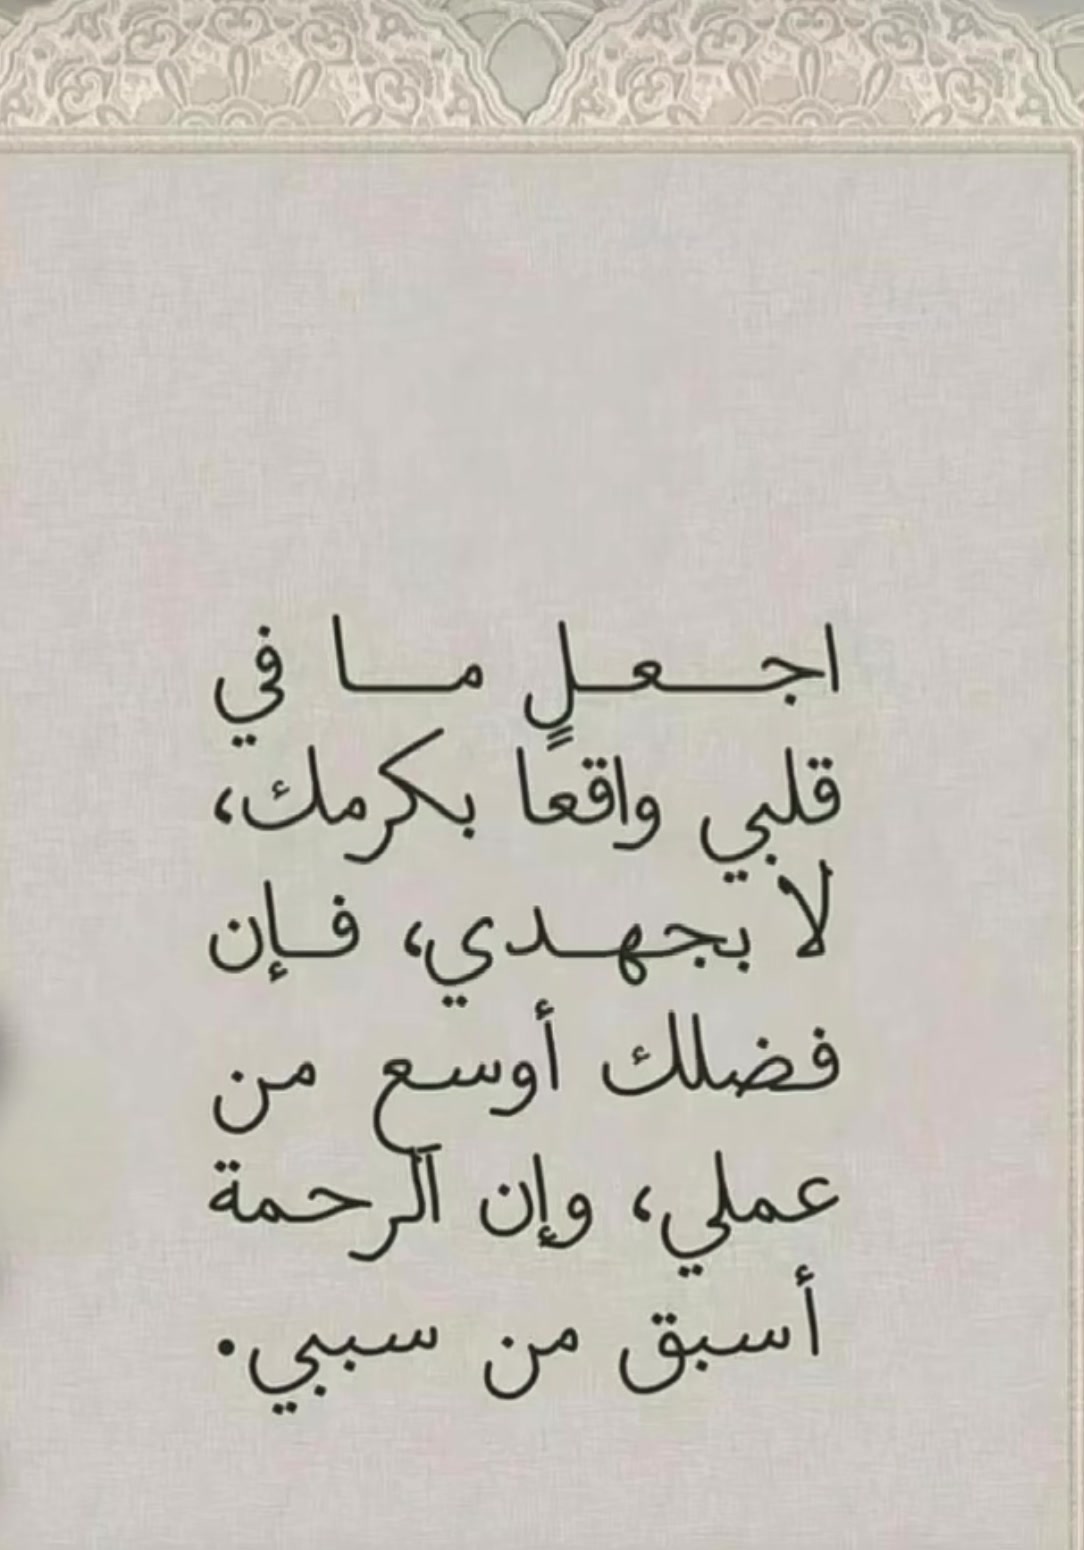 اجعلٍ ما في
قلبي واقعًا بكرمك،
لا بجهدي، فإن
فضلك أوسع من
عملي، وإن الرحمة
أسبق من سببي.